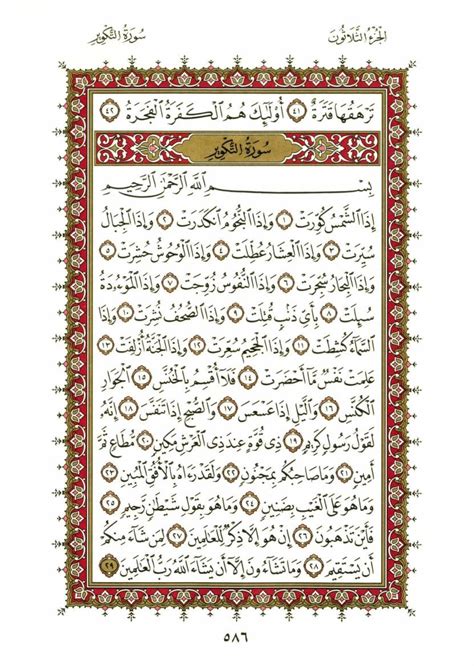 الجزء الثلاثون
سورة التكوير
تَرْهَقُهَا قَتَرَةٌ ٤١ أُوْلَٰٓئِكَ هُمُ ٱلْكَفَرَةُ ٱلْفَجَرَةُ ٤٢
سورة التكوير
بِسْمِ ٱللَّهِ ٱلرَّحْمَٰنِ ٱلرَّحِيمِ
إِذَا ٱلشَّمْسُ كُوِّرَتْ ١ وَإِذَا ٱلنُّجُومُ ٱنكَدَرَتْ ٢ وَإِذَا ٱلْجِبَالُ
سُيِّرَتْ ٣ وَإِذَا ٱلْعِشَارُ عُطِّلَتْ ٤ وَإِذَا ٱلْوُحُوشُ حُشِرَتْ ٥
وَإِذَا ٱلْبِحَارُ سُجِّرَتْ ٦ وَإِذَا ٱلنُّفُوسُ زُوِّجَتْ ٧ وَإِذَا ٱلْمَوْءُۥدَةُ
سُئِلَتْ ٨ بِأَيِّ ذَنۢبٍ قُتِلَتْ ٩ وَإِذَا ٱلصُّحُفُ نُشِرَتْ ١٠ وَإِذَا
ٱلسَّمَآءُ كُشِطَتْ ١١ وَإِذَا ٱلْجَحِيمُ سُعِّرَتْ ١٢ وَإِذَا ٱلْجَنَّةُ أُزْلِفَتْ ١٣
عَلِمَتْ نَفْسٌ مَّآ أَحْضَرَتْ ١٤ فَلَآ أُقْسِمُ بِٱلْخُنَّسِ ١٥ ٱلْجَوَارِ
ٱلْكُنَّسِ ١٦ وَٱلَّيْلِ إِذَا عَسْعَسَ ١٧ وَٱلصُّبْحِ إِذَا تَنَفَّسَ ١٨ إِنَّهُۥ
لَقَوْلُ رَسُولٍ كَرِيمٍ ١٩ ذِى قُوَّةٍ عِندَ ذِى ٱلْعَرْشِ مَكِينٍ ٢٠ مُّطَاعٍ ثَمَّ
أَمِينٍ ٢١ وَمَا صَاحِبُكُم بِمَجْنُونٍ ٢٢ وَلَقَدْ رَءَاهُ بِٱلْأُفُقِ ٱلْمُبِينِ ٢٣
وَمَا هُوَ عَلَى ٱلْغَيْبِ بِضَنِينٍ ٢٤ وَمَا هُوَ بِقَوْلِ شَيْطَٰنٍ رَّجِيمٍ ٢٥
فَأَيْنَ تَذْهَبُونَ ٢٦ إِنْ هُوَ إِلَّا ذِكْرٌ لِّلْعَٰلَمِينَ ٢٧ لِمَن شَآءَ مِنكُمْ
أَن يَسْتَقِيمَ ٢٨ وَمَا تَشَآءُونَ إِلَّآ أَن يَشَآءَ ٱللَّهُ رَبُّ ٱلْعَٰلَمِينَ ٢٩
٥٨٦